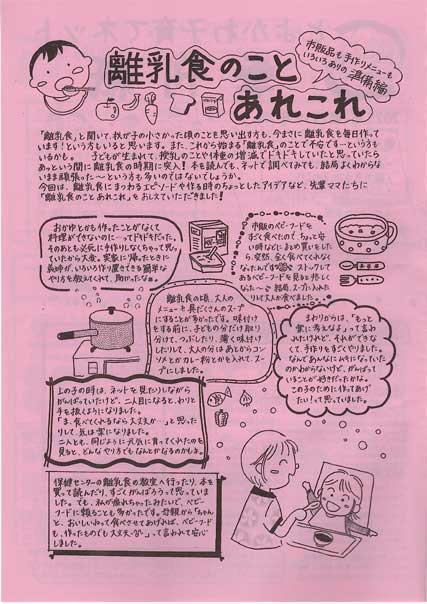 市販品も手作りメニューも
いろいろありの
準備編
離乳食のこと
あれこれ
「離乳食」と聞いて、我が子の小さかった頃のことを思い出す方も、今まさに離乳食を毎日作って
います!という方もいると思います。また、これから始まる「離乳食」のことで不安です…という方も
いるかも。 子どもが生まれて、授乳のことや体重の増減でドキドキしていたと思っていたら
あっという間に離乳食の時期に突入!本を読んでも、ネットで調べてみても、結局よくわからな
いまま頑張った〜という方も多いのではないでしょうか。
今回は、離乳食にまつわるエピソードや作る時のちょっとしたアイデアなど、先輩ママたちに
「離乳食のことあれこれ」をおしえていただきました!
おかゆとかも作ったことがなくて
料理ができないのに…ってドキドキだった。
そのあとも必死に手作りしなくちゃって思っ
ていたから大変。実家に帰ったときに
義姉が、いろいろ作り置きできる簡単な
やり方を教えてくれて、助かったなぁ。
市販のベビーフードを
すごく食べたので、ちょっと安
い時などにまとめ買いをした
ら、突然、全く食べてくれなく
なったんです。ストックして
あるベビーフードを見ると悲しく
なった〜。結局、スープに入れた
りして大人が食べました。
離乳食の頃、大人の
メニューも具だくさんのスープ
にすることが多かったです。味付け
をする前に、子どもの分だけ取り
分けて、つぶしたり、薄く味付け
したりして、大人の分はあとからコン
ソメとかカレー粉とかを入れて、スー
プにしました。
まわりからは、「もっと
楽に考えなよ」って言わ
れたけれど、それができな
くて、手作りをすごくやりました。
なんであんなにムキになっていた
のかわからないけど、がんばって
いることが好きだったかな。
この子のために作ってあげ
たい!って思っていました。
上の子の時は、ネットを見たりしながら
がんばっていたけど、二人目になると、わりと
手を抜くようになりました。
「ま、食べてくれるなら大丈夫か…」と思った
りして、気は楽になりました。
二人とも、同じように元気に育ってくれたのを
見ると、どんなやり方でもなんとかなるのかもぉ。
保健センターの離乳食の教室へ行ったり、本を
買って読んだり、すごくがんばろうって思っていま
した。でも、私が疲れちゃったみたいで、ベビー
フードに頼ることも多かったです。母親から「ちゃん
と、おいしいねって食べさせてあげれば、ベビーフード
も、作ったものでも大丈夫。」って言われて安心
しました。